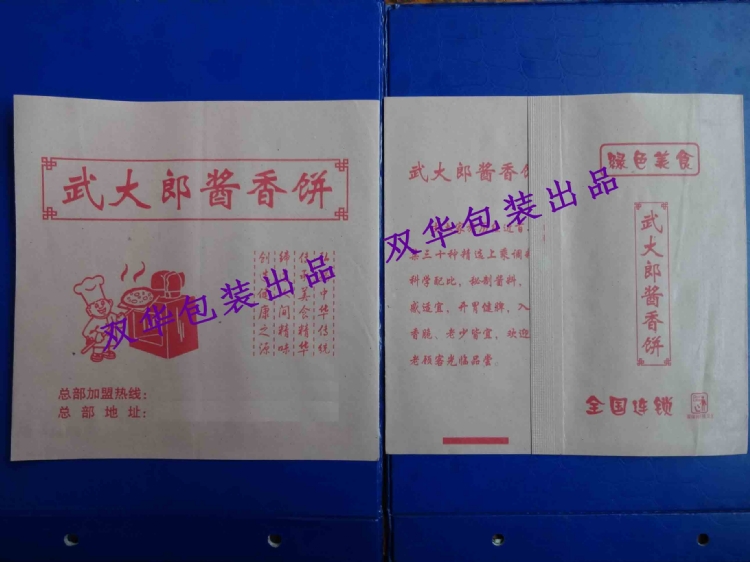 武大郎酱香饼
弘中华传统
传承美食精华
缔人间精味
创造健康之源
总部加盟热线：
总部地址：
武大郎酱香
三十种精选上乘调
科学配比，秘制酱料，
咸适宜，开胃健脾，入
香脆，老少皆宜，欢迎
老顾客光临品尝。
绿色美食
武大郎酱香饼
全国连锁
双华包装出品
双华包装出品